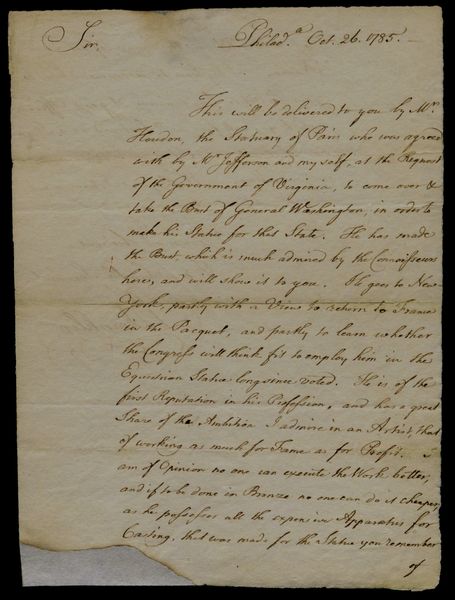 Sir, Philad.a Oct. 26. 1785.
This will be delivered to you by Mr.
Houdon, the Statuary of Paris who was agreed
with by Mr Jefferson and my self, at the Request
of the Government of Virginia, to come over &
take the Bust of General Washington, in order to
make his Statue for that State. He has made
the Bust, which is much admired by the Connoisseurs
here, and will show it to you. He goes to New-
York, partly with a View to return to France
in the Pacquet, and partly to learn whether
the Congress will think fit to employ him in the
Equestrian Statue long since voted. He is of the
first Reputation in his Profession, and has a great
Share of the Ambition I admire in an Artist, that
of working as much for Fame as for Profit. I
am of Opinion no one can execute the Work better,
and if to be done in Bronze no one can do it cheaper,
as he possesses all the expensive Apparatus for
Casting, that was made for the Statue you remember
of